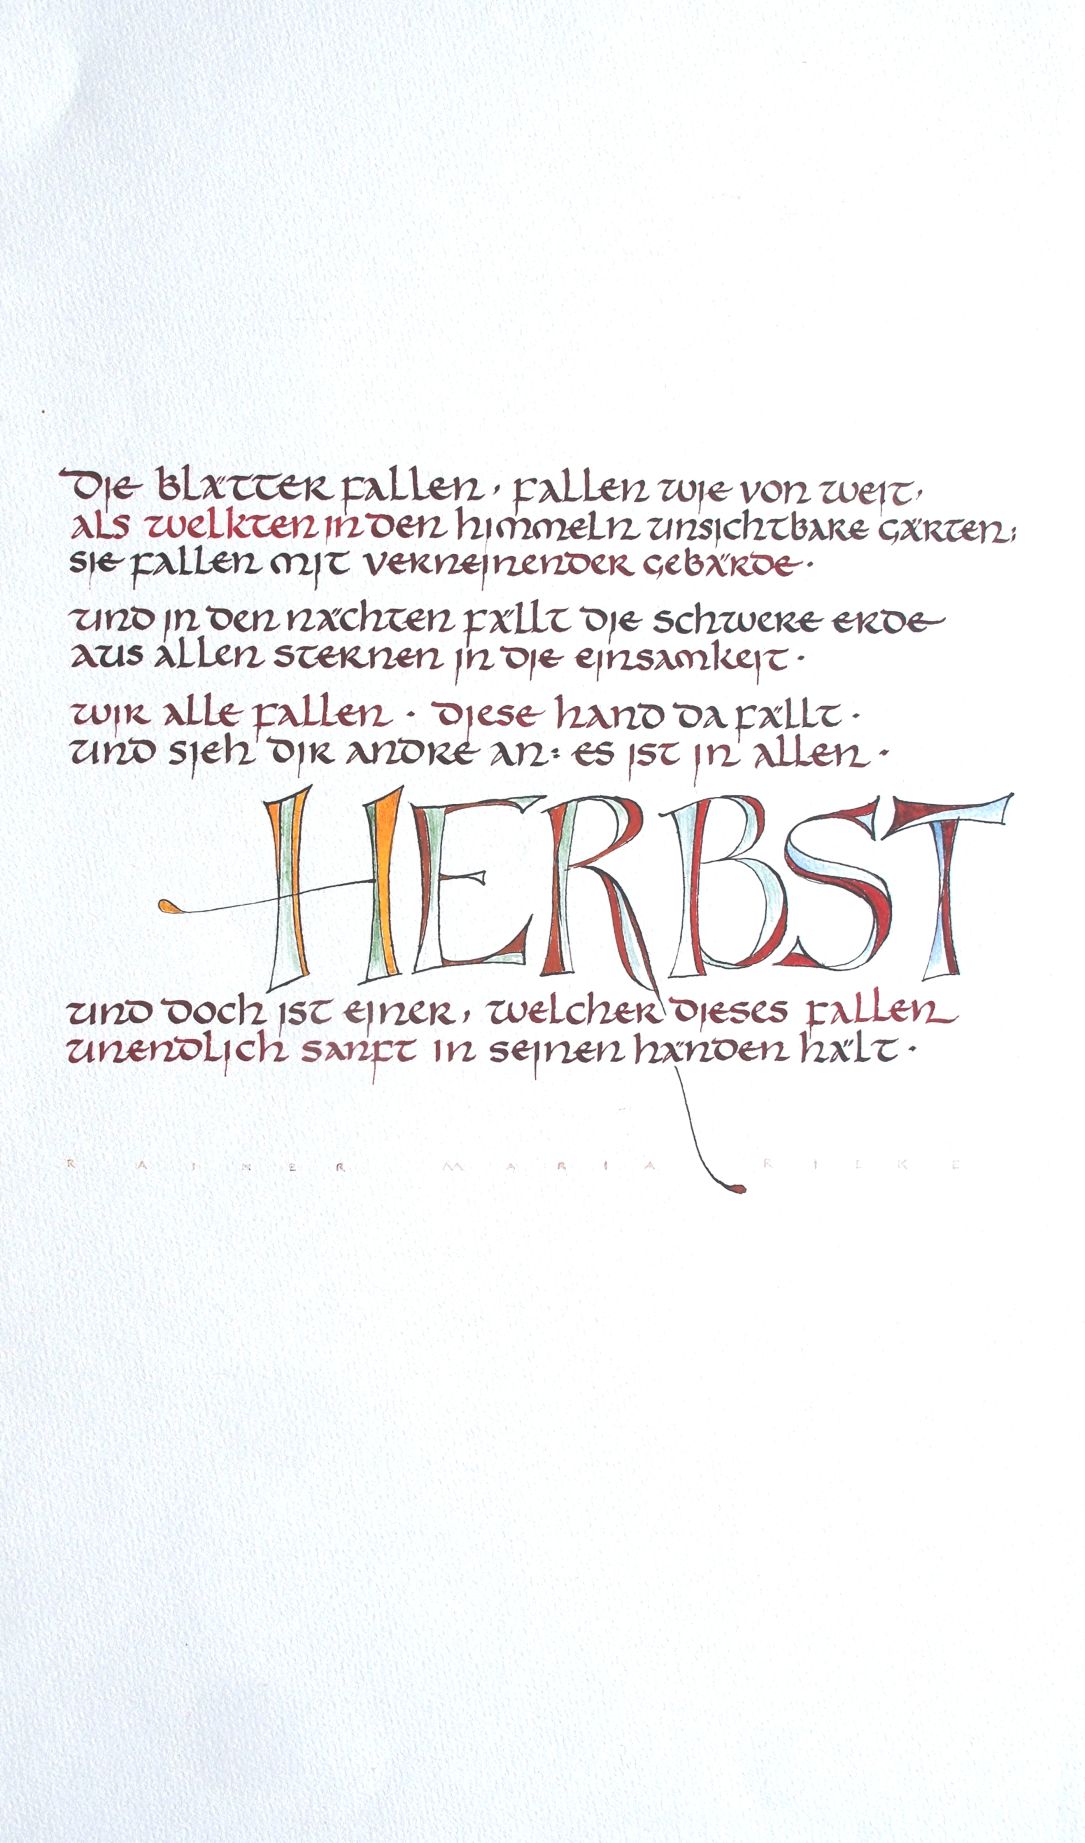 die blätter fallen, fallen wie von weit,
als welkten in den himmeln unsichtbare gärten;
sie fallen mit verneinender gebärde.
und in den nächten fällt die schwere erde
aus allen sternen in die einsamkeit.
wir alle fallen. diese hand da fällt.
und sieh dir andre an: es ist in allen.
HERBST
und doch ist einer, welcher dieses fallen
unendlich sanft in seinen händen hält.
RAINER MARIA RILKE